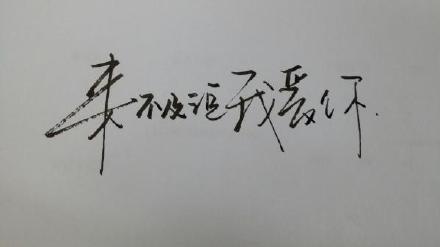 来不及说我爱你.